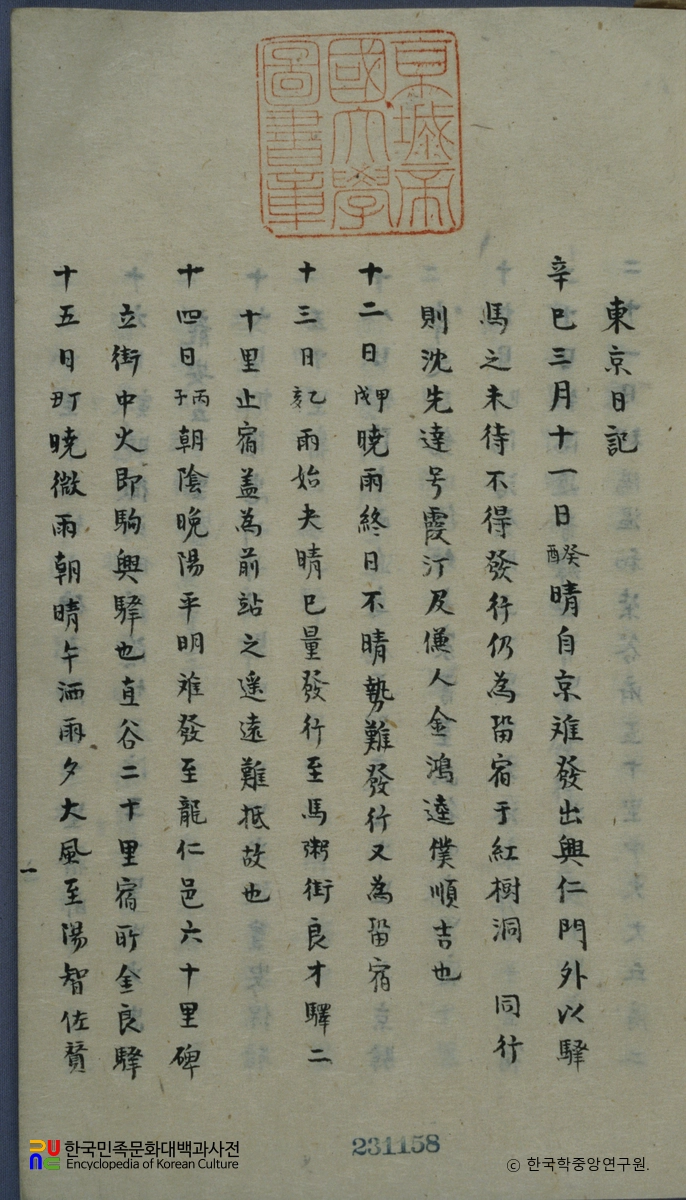 京城帝
國大學
圖書章
東京日記
辛巳三月十一日癸酉晴自京離發出興仁門外以驛
馬之未待不得發行仍為留宿于紅樹洞 同行
則沈先達号霞汀及傔人金鴻逵僕順吉也
十二日甲戌曉雨終日不晴勢難發行又為留宿
十三日乙亥雨始夬晴巳量發行至馬粥街良才驛二
十里止宿盖為前站之遙遠難抵故也
十四日丙子朝陰晩陽平明难發至龍仁邑六十里碑
立街中火即駒興驛也直谷二十里宿所金良驛
十五日丁丑曉微雨朝晴午洒雨夕大風至陽智佐贊
一
231158
한국민족문화대백과사전
Encyclopedia of Korean Culture
ⓒ 한국학중앙연구원.